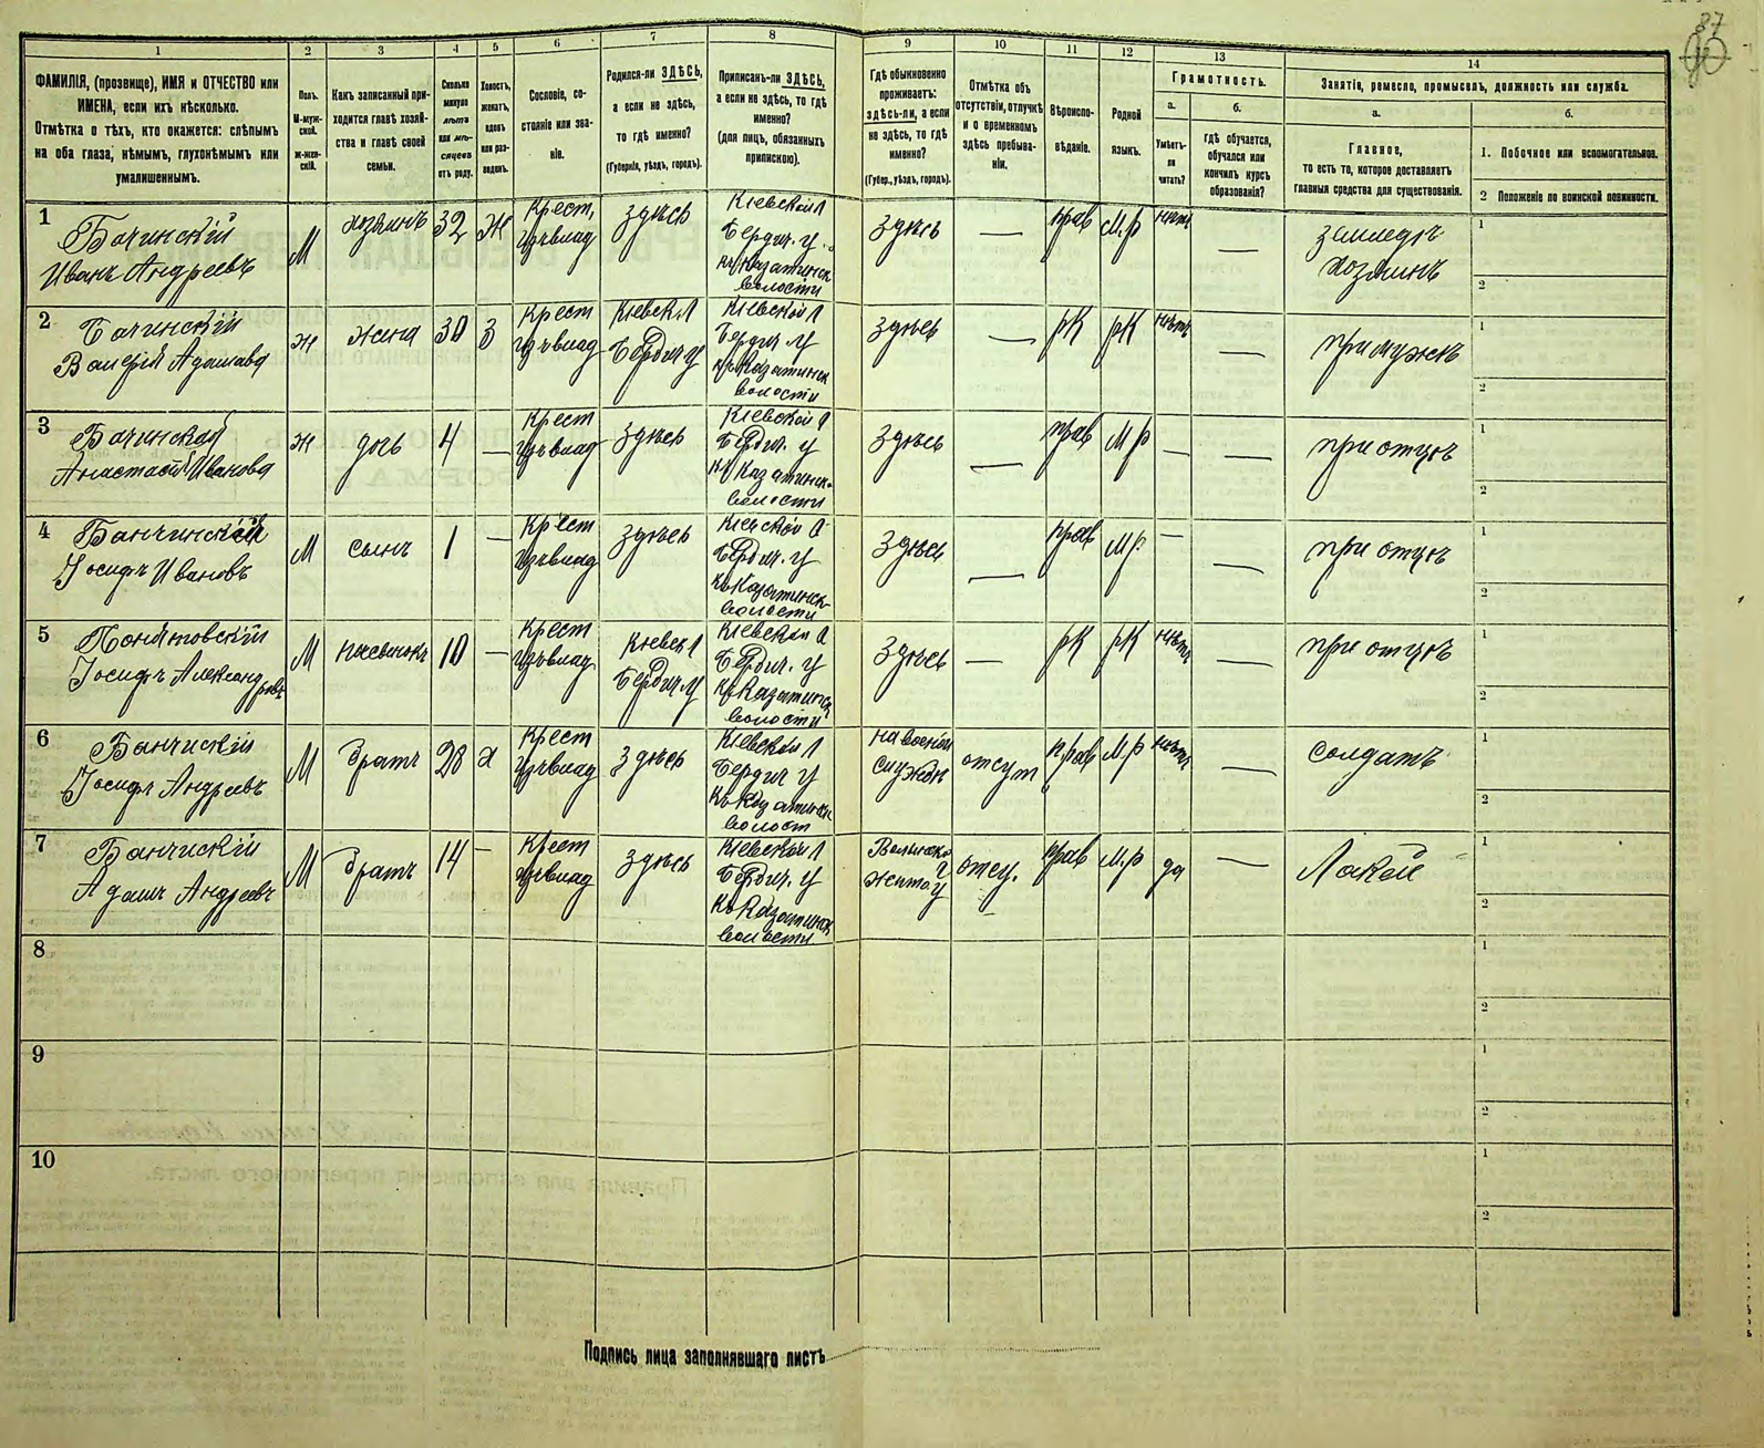 87
90
1
2
3
4
5
6
7
8
9
10
11
12
13
14
ФАМИЛІЯ, (прозвище), ИМЯ и ОТЧЕСТВО или
ИМЕНА, если ихъ нѣсколько.
Отмѣтка о тѣхъ, кто окажется: слѣпымъ
на оба глаза, нѣмымъ, глухонѣмымъ или
умалишеннымъ.
Полъ.
М-муж-
ской.
Ж-жен-
скій.
Какъ записанный при-
ходится главѣ хозяй-
ства и главѣ своей
семьи.
Сколько
минуло
лѣтъ
или мѣ-
сяцевъ
отъ роду.
Холостъ,
женатъ,
вдовъ
или раз-
веденъ.
Сословіе, со-
стояніе или зва-
ніе.
Родился-ли ЗДѢСЬ,
а если не здѣсь,
то гдѣ именно?
(Губернія, уѣздъ, городъ).
Приписанъ-ли ЗДѢСЬ,
а если не здѣсь, то гдѣ
именно?
(для лицъ, обязанныхъ
припискою).
Гдѣ обыкновенно
проживаетъ:
здѣсь-ли, а если
не здѣсь, то гдѣ
именно?
(Губер., уѣздъ, городъ).
Отмѣтка объ
отсутствіи, отлучкѣ
и о временномъ
здѣсь пребыва-
ніи.
Вѣроиспо-
вѣданіе.
Родной
языкъ.
Грамотность.
а.
Умѣетъ-
ли
читать?
б.
Гдѣ обучается,
обучался или
кончилъ курсъ
образованія?
Занятія, ремесло, промыселъ, должность или служба.
а.
Главное,
то есть то, которое доставляетъ
главныя средства для существованія.
б.
1. Побочное или вспомогательное.
2 Положеніе по воинской повинности.
1
Бачинскій
Иванъ Андреевъ
М
хозяинъ
32
Ж
Крест,
здѣсь
Кіевской
Бердич. у
Казатинск
волости
здѣсь
—
прав
М.р
нѣтъ
—
хозяинъ
1
2
2
Бачинскій
ж
жена
30
З
Крест
Кіевск
Бердич у
Кіевской
Бердич у
Казатинск
волости
здѣсь
—
рК
рК
нѣтъ
—
при мужѣ
1
2
3
Бачинская
Анастасія Иванова
ж
дочь
4
—
Крест
здѣсь
Кіевской
Бердич. у
Казатинск-
волости
здѣсь
—
прав
М р
—
—
при отцѣ
1
2
4
Банчинскій
Іосифъ Ивановъ
М
сынъ
1
—
Крест
здѣсь
Кіевской
Бердич. у
Казатинск-
волости
здѣсь
—
прав
М р
—
—
при отцѣ
1
2
5
Понятовскій
Іосифъ Александ
ровъ
М
10
—
Крест
Кіевск
Бердич у
Кіевской
Бердич. у
Казатинск
волости
здѣсь
—
рК
рК
нѣтъ
—
при отцѣ
1
2
6
Банчискій
Іосифъ Андреевъ
М
братъ
28
х
Крест
здѣсь
Кіевской
Бердич у
волост
на военой
службѣ
отсут
прав
М р
нѣтъ
—
солдатъ
1
2
7
Банчискій
Адамъ Андреевъ
М
братъ
14
—
Крест
здѣсь
Кіевской
Бердич. у
Казатинск
волости
отсу.
прав
М.р
да
—
Лакей
1
2
8
1
2
9
1
2
10
1
2
Подпись лица заполнявшаго листъ